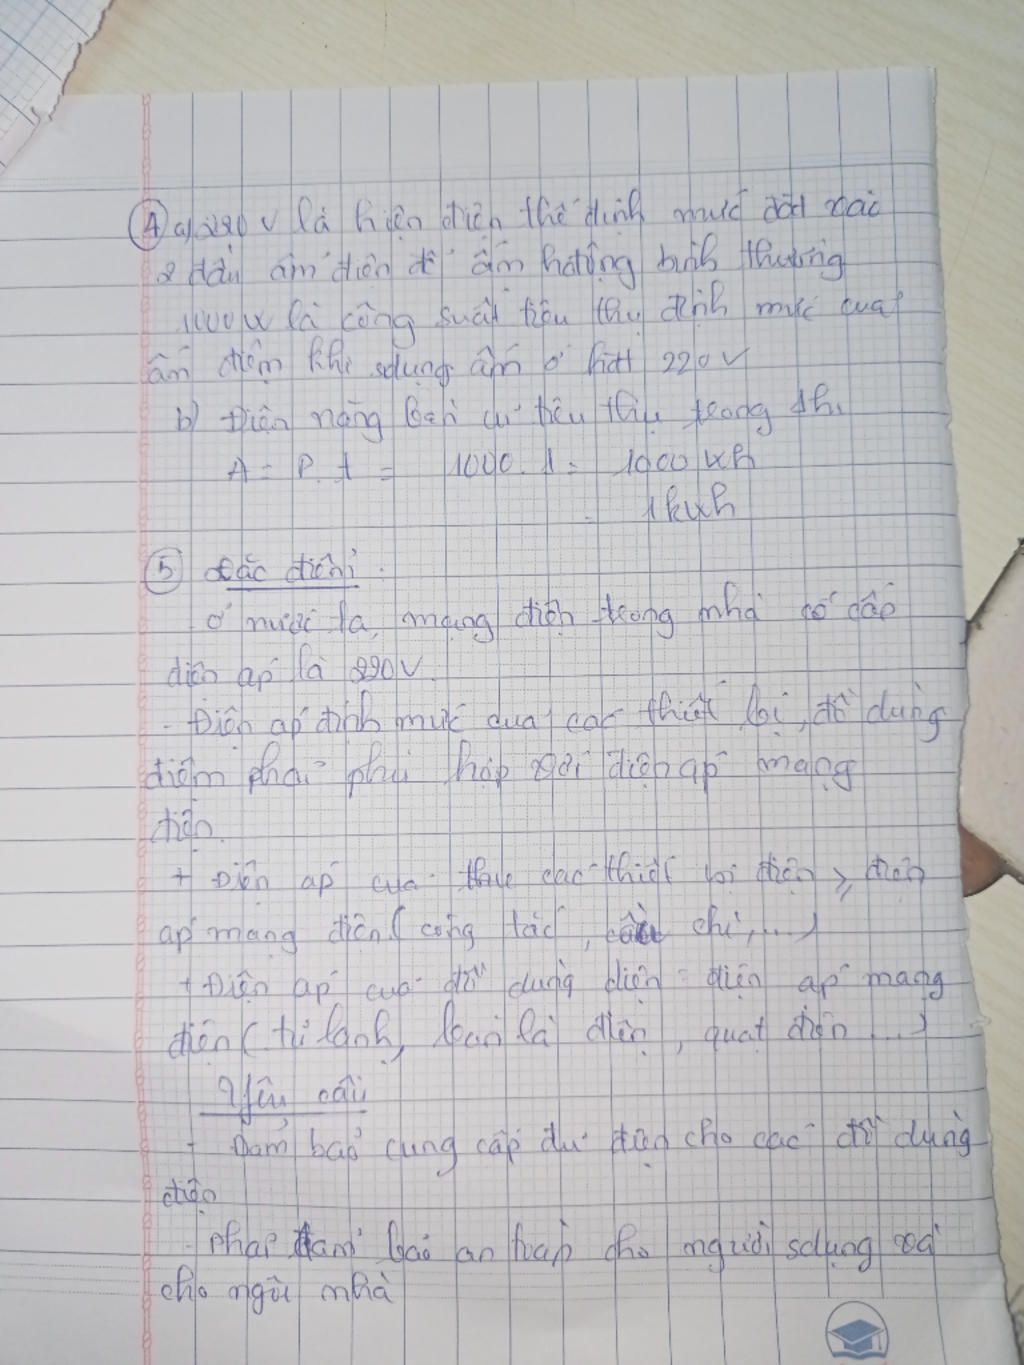 ④ a) 220 V là hiện điện thế định mức đặt vào
2 đầu ấm điện để ấm hđộng bình thường
1000W là công suất tiêu thụ định mức của
ấm điện khi sdụng ấm ở hđt 220V
b) Điện năng tiêu thụ trong 1h
A = P.t = 1000.1 = 1000 Wh
= 1kWh
⑤ Đặc điểm
- Ở nước ta, mạng điện trong nhà có cấp
điện áp là 220V
- Điện áp định mức của các thiết bị, đồ dùng
điện phải phù hợp với điện áp mạng
điện
+ Điện áp của các thiết bị điện ≥ điện
áp mạng điện (công tắc, cầu chì,...)
+ Điện áp của đồ dùng điện = điện áp mạng
điện (tủ lạnh, bàn là điện, quạt điện ...)
Yêu cầu
- Đảm bảo cung cấp đủ điện cho các đồ dùng
điện
- Phải đảm bảo an toàn cho người sdụng và
cho ngôi nhà